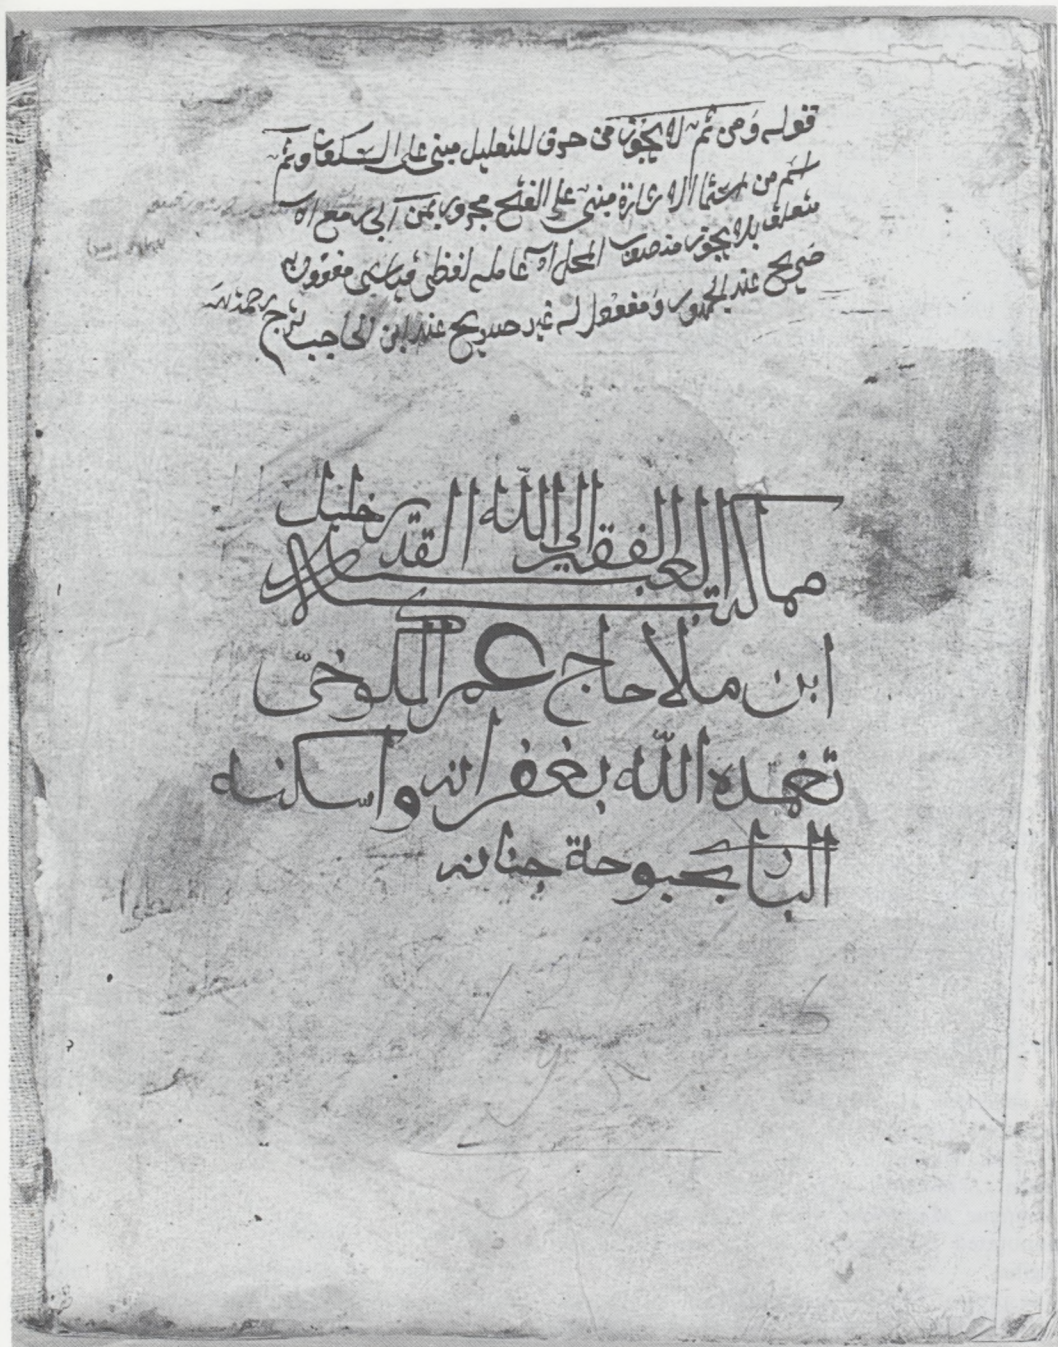 قوله ومن ثم لا يجوز من حرف للتعليل مبنى على السكون وثم
اسم من اسماء الاشارة مبنى على الفتح مجرور بمن الجار مع
متعلق بلا يجوز منصوب المحل عامله لفظى قياسى مفعول له
صريح عند الجمهور ومفعول له غير صريح عند ابن الحاجب
مما له العبد الفقير الى الله القدير خليل
ابن ملا حاج عمر الكوخى
تغمده الله بغفرانه واسكنه
البارى بحبوحة جنانه